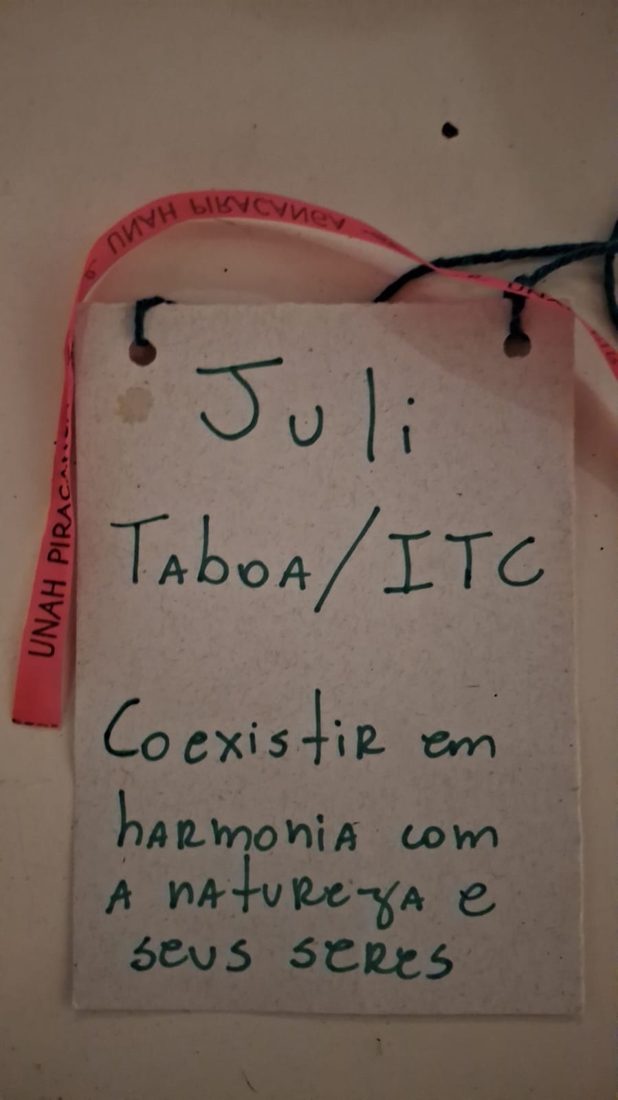 UNAH PIRACANGA
UNAH PIRACAN
Juli
Taboa/ITC
Coexistir em
harmonia com
a natureza e
seus seres